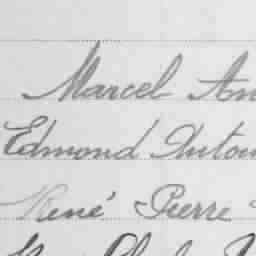 Marcel An
Edmond Antoin
René Pierre